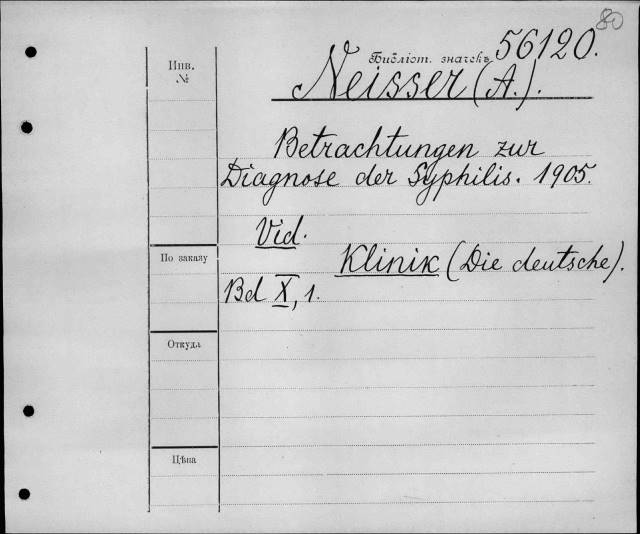 80
Библіот. значекъ 56120.
Инв.
№
Neisser (A.).
Betrachtungen zur
Diagnose der Syphilis. 1905.
Vid.
По заказу
Klinik (Die deutsche).
Bd X, 1.
Откудь
Цѣна